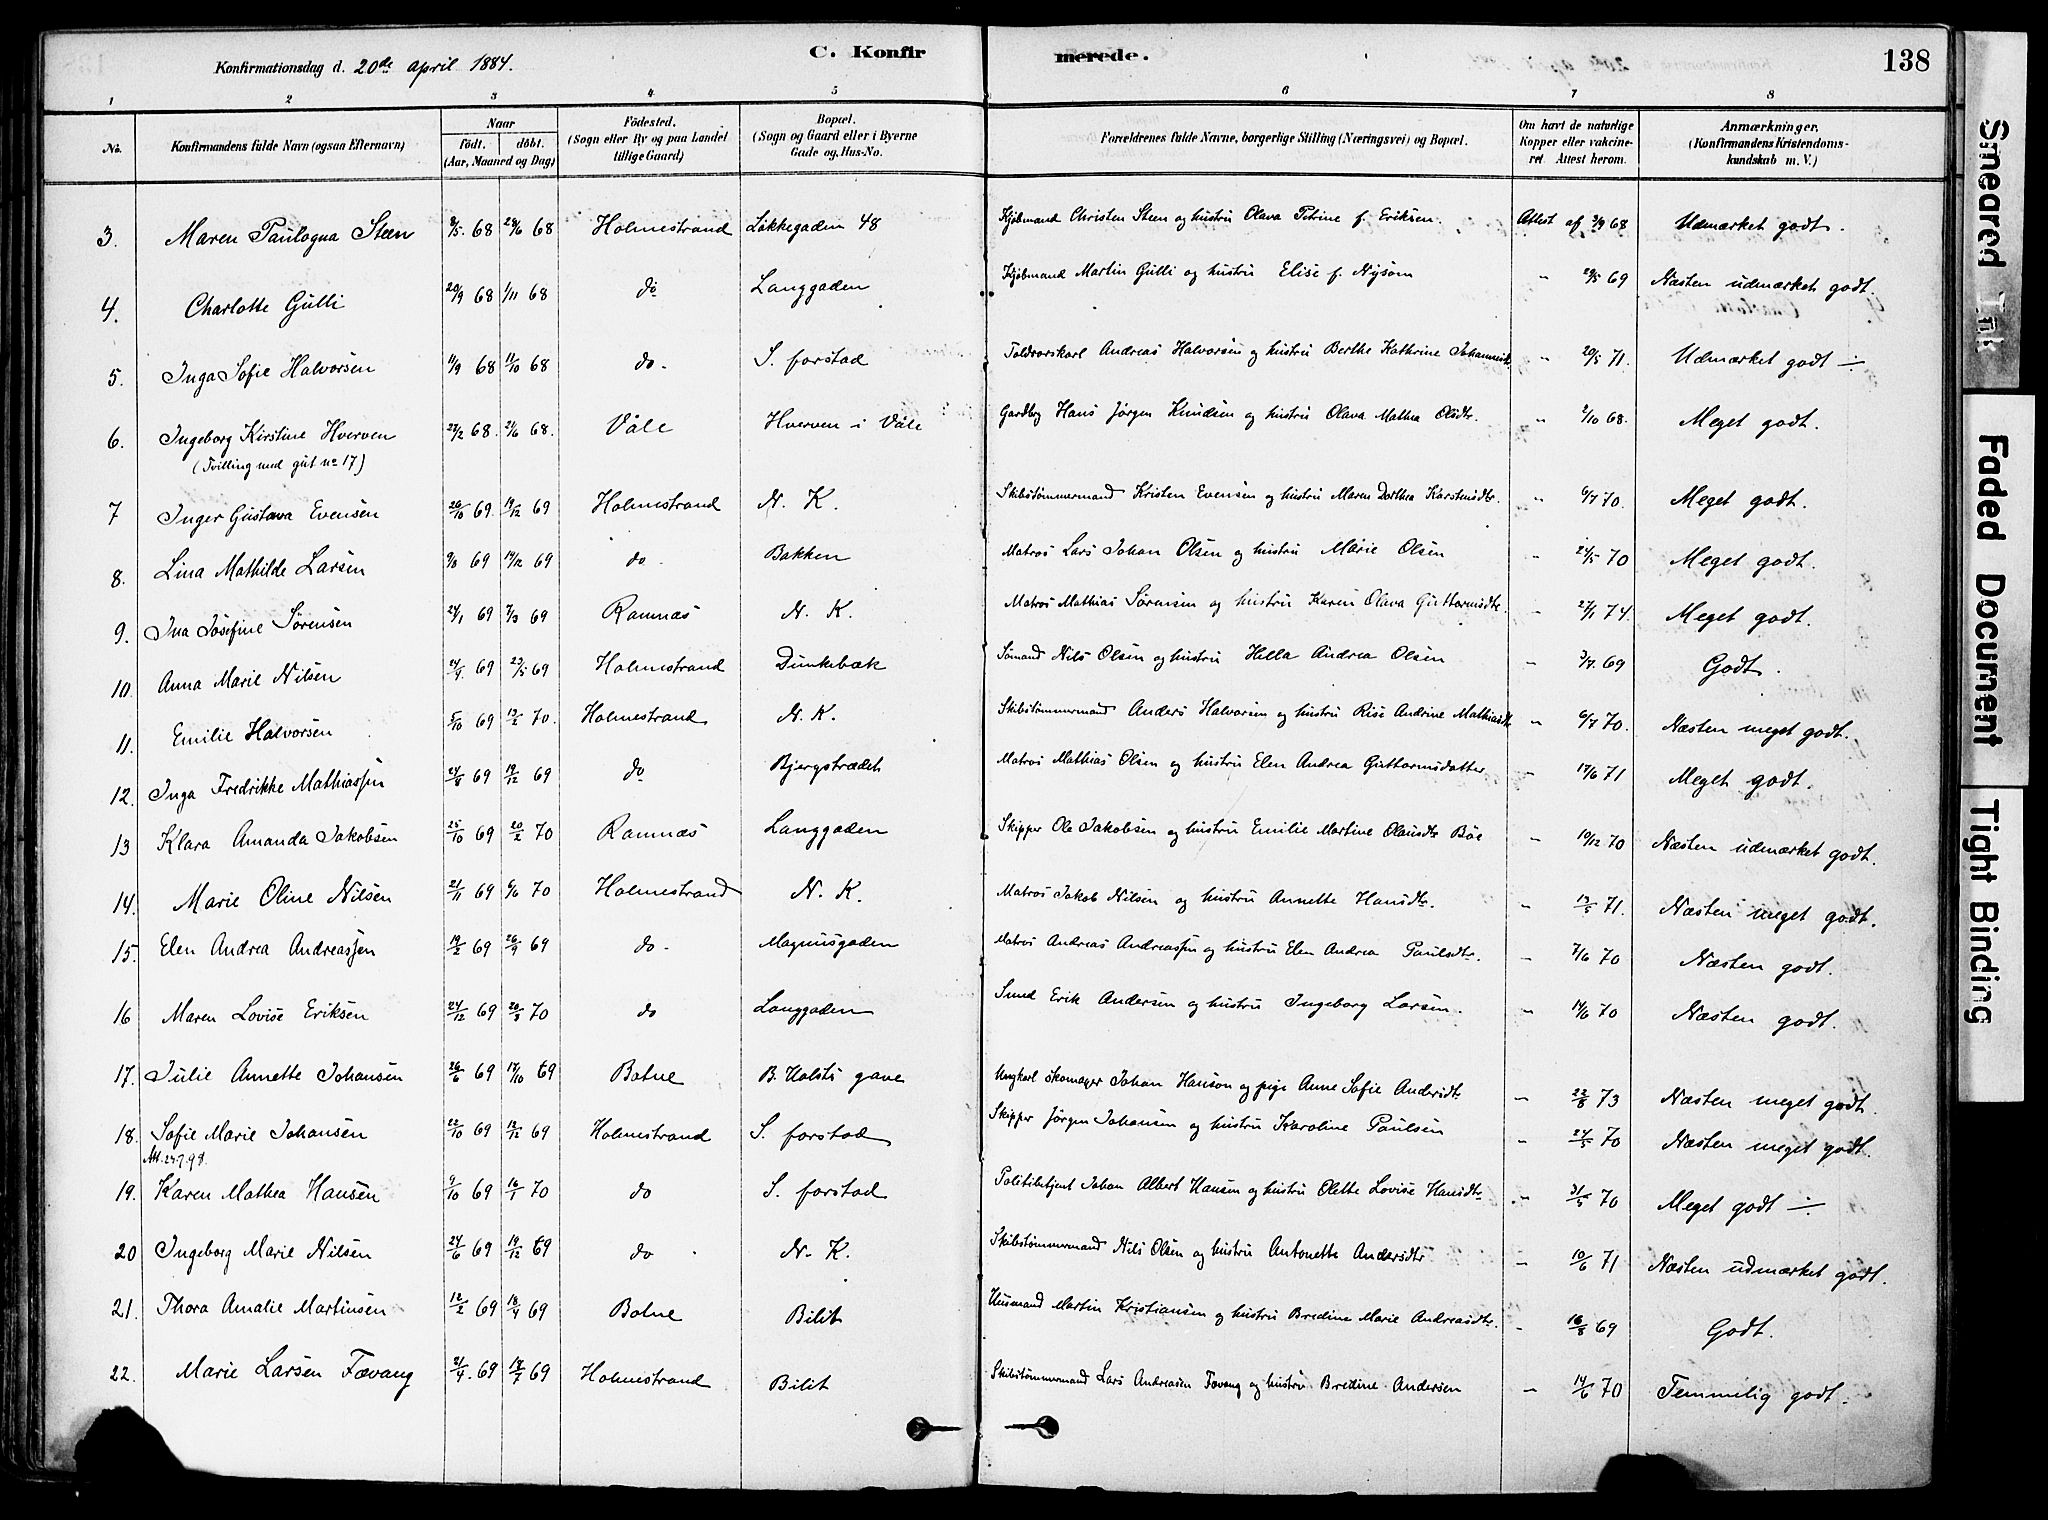 Konfirmationsdag d. 20de april 1884.
C. Konfirmerede.
138
1 2 3 4 5 6 7 8
No.
Konfirmandens fulde Navn (ogsaa Efternavn)
Naar
födt. döbt.
(Aar, Maaned og Dag)
Födested.
(Sogn eller By og paa Landet
tillige Gaard)
Bopæl.
(Sogn og Gaard eller i Byerne
Gade og Hus-No.
Forældrenes fulde Navne, borgerlige Stilling (Næringsvei) og Bopæl.
Om havt de naturlige
Kopper eller vakcine-
ret. Attest herom.
Anmærkninger.
(Konfirmandens Kristendoms-
kundskab m. V.)
3. Maren Paulogna Steen 9/5 68 28/6 68 Holmestrand Løkkegaden 48 Kjøbmand Christen Steen og hustru Olava Petrine f. Eriksen. Attest af 3/9 68 Udmærket godt.
4. Charlotte Gulli 20/9 68 1/11 68 do Langgaden Kjøbmand Martin Gulli og hustru Elise f. Nysom " 29/5 69 Næsten udmærket godt.
5. Inga Sofie Halvorsen 11/9 68 11/10 68 do. S. forstad Andreas Halvorsen og hustru Berthe Kathrine " 20/5 71. Udmærket godt ÷
6. Ingeborg Kirstine Hverven 28/2 68. 21/6 68. Våle Hverven i Våle Gardbrg Hans Jørgen Knudsen og hustru Olava Mathea Olsdtr. " 2/10 68. Meget godt.
(Tvilling med gut no 17)
7 Inger Gustava Evensen 26/10 69 19/12 69 Holmestrand N. K. Skibstømmermand Kristen Evensen og hustru Maren Dorthea Karstensdtr. " 6/7 70. Meget godt.
8. Lina Mathilde Larsen 69 19/12 69 do. Bakken Matros Lars Johan Olsen og hustru Marie Olsen " 24/5 70 Meget godt.
9. Ina Josefine Sørensen 24/1 69 7/3 69 Ramnæs N. K. Matros Mathias Sørensen og hustru Karen Olava Guttormsdtr. " 27/1 74. Meget godt.
10. Anna Marie Nilsen 24/4 69 23/5 69 Holmestrand Dunkebæk Sømand Nils Olsen og hustru Hella Andrea Olsen " 3/7 69 Godt.
11. Emilie Halvorsen 5/10 69 13/2 70. Holmestrand N. K. Skibstømmermand Anders Halvorsen og hustru Rise Andrine Mathiasdtr " 6/7 70. Næsten meget godt.
12. Inga Fredrikke Mathiassen 24/8 69 19/12 69 do Bjergstrædet Matros Mathias Olsen og hustru Elen Andrea Guttormsdatter " 17/6 71 Meget godt.
13 Klara Amanda Jakobsen 25/10 69 20/2 70 Ramnæs Langgaden Skipper Ole Jakobsen og hustru Emilie Martine Olausdtr Bøe " 19/12 70 Næsten udmærket godt.
14. Marie Oline Nilsen 21/11 69 6/6 70 Holmestrand N. K. Matros Jakob Nilsen og hustru Annette Hansdtr. " 13/5 71. Næsten meget godt.
15. Elen Andrea Andreassen 19/2 69 26/9 69 do. Magnusgaden Matros Andreas Andreassen og hustru Elen Andrea Paulsdtr. " 7/6 70 Næsten godt.
16 Maren Lovise Eriksen 24/12 69 20/3 70 do Langgaden Smed Erik Andersen og hustru Ingeborg Larsen. " 14/6 70 Næsten godt.
17. Julie Annette Johansen 26/6 69 17/10 69 Botne B. Holsts gave Ungkarl skomager Johan Hanson og pige Anne Sofie Andersdtr " 22/8 73 Næsten meget godt.
18. Sofie Marie Johansen 22/10 69 12/12 69 Holmestrand S. forstad Skipper Jørgen Johansen og hustru Karoline Paulsen " 24/5 70 Næsten meget godt.
Att. 24.7.98.
19. Karen Mathea Hansen 9/10 69 16/1 70 do S. forstad Politibetjent Johan Albert Hansen og hustru Olette Lovise Hansdtr " 31/5 70 Meget godt ÷
20 Ingeborg Marie Nilsen 24/6 69 19/12 69 do N. K. Skibstømmermand Nils Olsen og hustru Antonette Andersdtr " 10/6 71 Næsten udmærket godt.
21. Thora Amalie Martinsen 12/2 69 18/4 69 Botne Bilit Husmand Martin Kristiansen og hustru Bredine Marie Andreasdtr. " 16/8 69 Godt.
22. Marie Larsen Fævang 21/4. 69 69 Holmestrand Bilit Skibstømmermand Lars Andreasen Fævang og hustru Bredine Andersen " 14/6 70 Temmelig godt.
Smeared Ink
Faded Document
Tight Binding